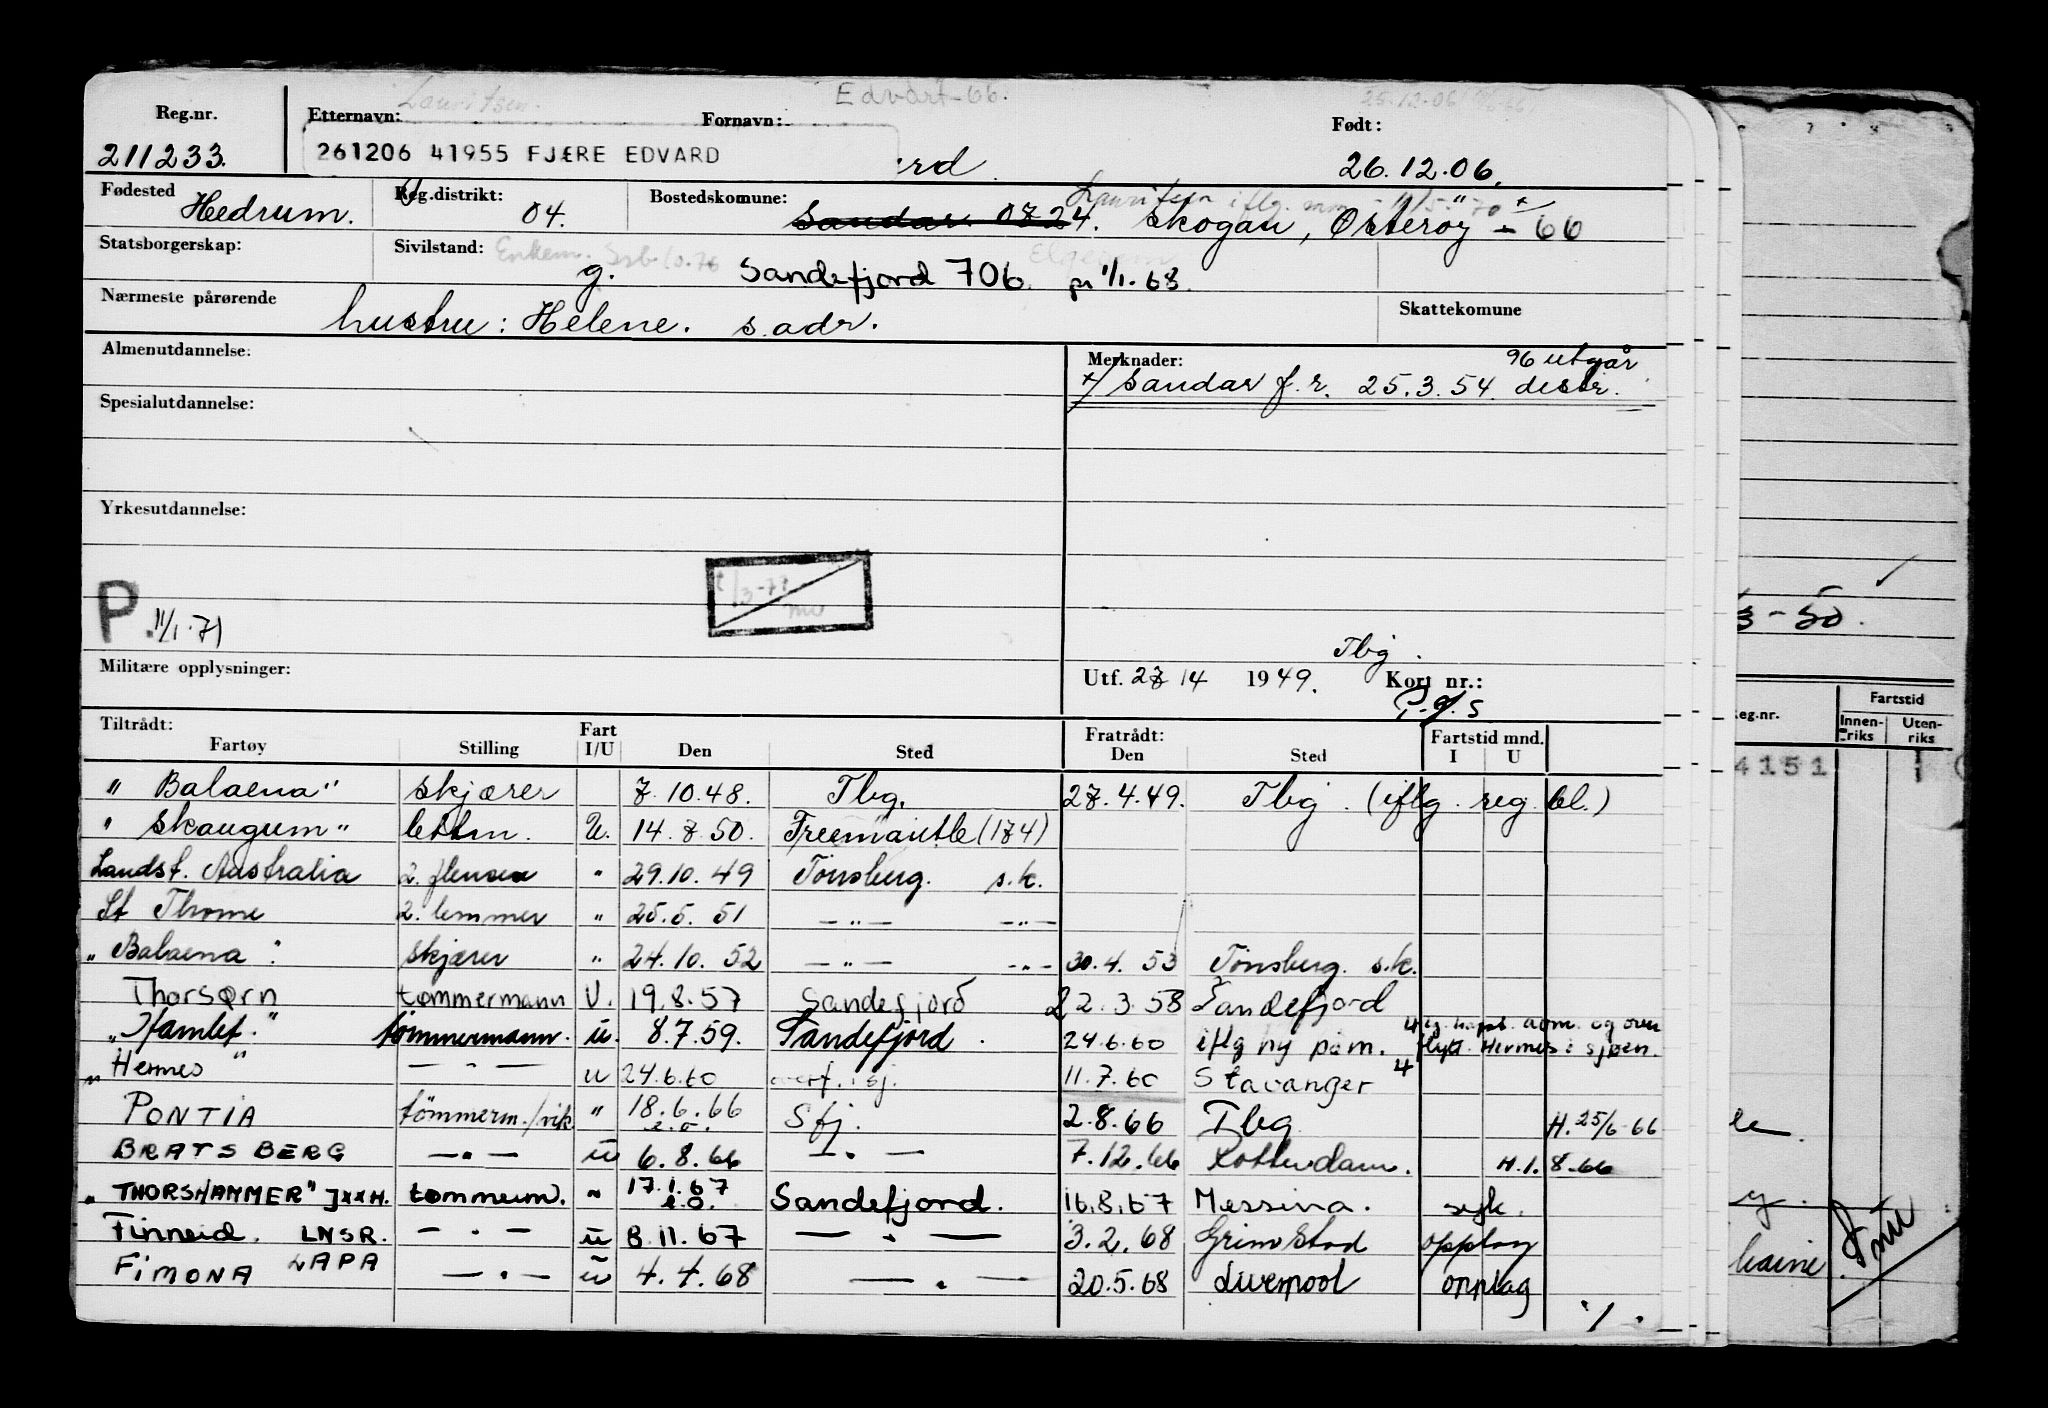 Lauritsen. Edvart-66. 25.12.06
Reg.nr. Etternavn: Fornavn: Født:
211233. 261206 41955 FJÆRE EDVARD rd. 26.12.06.
Fødested Reg.distrikt: Bostedskomune: Lauritsen iflg. mm - 11/5-70 x
Hedrum. 04. Sandar 0724. Skogan, Østerøy - 66
Statsborgerskap: Sivilstand: Enkem. Elgesem
g. Sandefjord 706. pr 1/1.68.
Nærmeste pårørende Skattekomune
hustru: Helene. s.adr.
Almenutdannelse: Merknader: 96 utgår
x/ Sandar f.r. 25.3.54. distr.
Spesialutdannelse:
Yrkesutdannelse:
P. 11/1.71
3-50.
Tbg.
Militære opplysninger: Utf. 27/4 1949. Kort nr.:
P.g.S
Tiltrådt: Fart Fratrådt: Fartstid mnd. eg.nr. Fartstid
Fartøy Stilling I/U Den Sted Den Sted I U Innenriks Utenriks
4151
" Balaena" skjærer 7.10.48. Tbg. 27.4.49. Tbg. (iflg. reg. bl.)
" Skaugum" lettm. U. 14.7.50. Freemantle (174)
Landst. Australia 2. flenser " 29.10.49 Tønsberg. s.k.
St Thome 2. lemmer " 25.5.51 - " - - " -
" Balaena " skjærer " 24.10.52 - " - - " - 30.4.53 Tønsberg. s.k.
Thorsørn tømmermann U. 19.8.57 Sandefjord 22.3.58 Sandefjord
" Hamlet." tømmermann. u. 8.7.59. Sandefjord. 24.6.60 iflg ny påm. flytt. Hermes i sjøen.
" Hermes " - " - u 24.6.60 overf. i sj. 11.7.60 Stavanger
PONTIA tömmerm./vik " 18.6.66 e.o. Sfj. 2.8.66 Tbg. H. 25/6-66
BRATSBERG - " - u 6.8.66 - " - 7.12.66 Rotterdam. H.1.8-66
" THORSHAMMER" JXXH. tømmerm. " 17.1.67 e.o. Sandefjord. 16.8.67 Messina. syk.
Finneid. LNSR. - " - u 8.11.67 - " - 3.2.68 Grimstad opplag
FIMONA LAPA - " - u 4.4.68 - " - 20.5.68 Liverpool opplag
./.